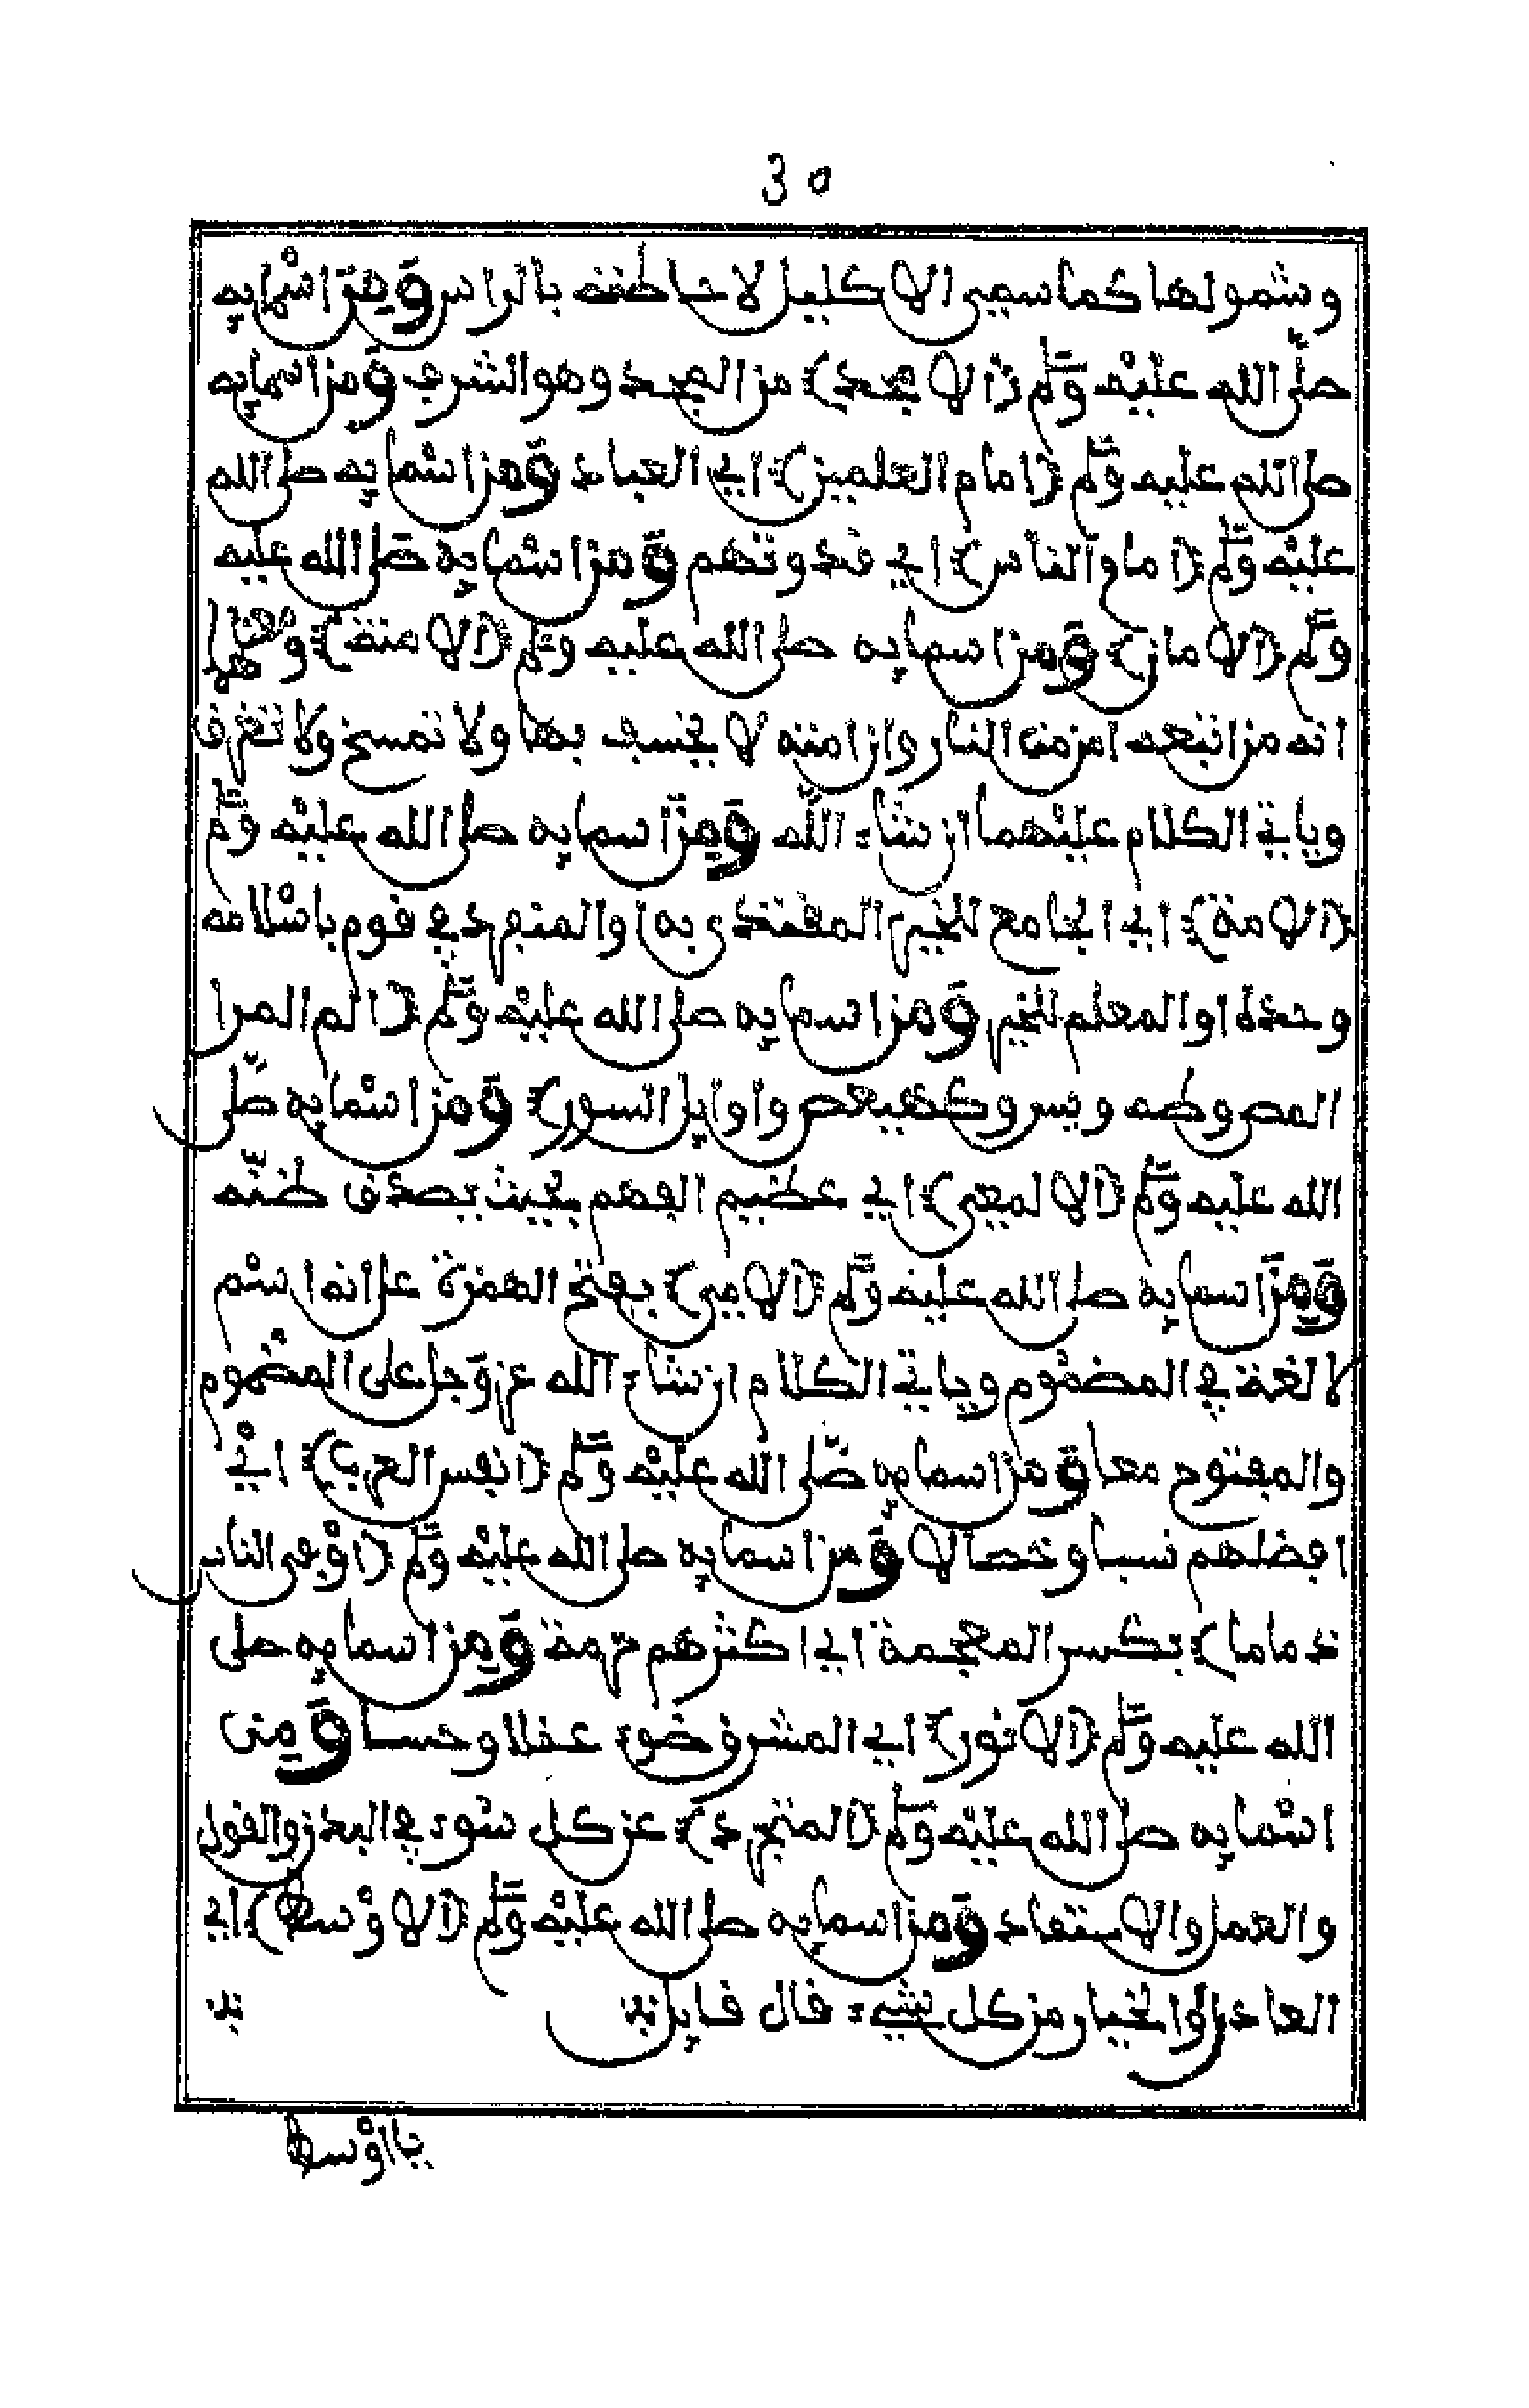 30
وشمولها كما سمي الاكليل لاحاطته بالراس ومن اسمايه
صلى الله عليه وسلم (الامجد) من المجد وهو الشرف ومن اسمايه
صلى الله عليه وسلم (امام العلمين) اي العباد ومن اسمايه صلى الله
عليه وسلم (امام الناس) اي قدوتهم ومن اسمايه صلى الله عليه
وسلم (الامان) ومن اسمايه صلى الله عليه وسلم (الامنة) ومعناهما
انه من اتبعه امن من النار وان امته لا يخسف بها ولا تمسخ ولا تغرق
وياتي الكلام عليهما ان شاء الله ومن اسمايه صلى الله عليه وسلم
(الامة) اي الجامع للخير المقتدى به او المنفرد في قوم باسلامه
وحده او المعلم للخير ومن اسمايه صلى الله عليه وسلم (الم المرا
المص وطه ويس وكهيعص واوايل السور) ومن اسمايه صلى
الله عليه وسلم (الالمعي) اي عظيم الفهم بحيث يصدق ظنه
ومن اسمايه صلى الله عليه وسلم (الامي) بفتح الهمزة على انه اسم
لا لغة في المضموم وياتي الكلام ان شاء الله عز وجل على المضموم
والمفتوح معا ومن اسمايه صلى الله عليه وسلم (انفس العرب) اي
افضلهم نسبا وخصالا ومن اسمايه صلى الله عليه وسلم (اوفى الناس
ذماما) بكسر المعجمة اي اكثرهم حرمة ومن اسمايه صلى
الله عليه وسلم (الانور) اي المشرق ضوء عقلا وحسا ومن
اسمايه صلى الله عليه وسلم (المتجرد) عن كل سوء في البدن والقول
والعمل والاعتقاد ومن اسمايه صلى الله عليه وسلم (الاوسط) اي
العادل او الخيار من كل شيء قال قايل
يا اوسط